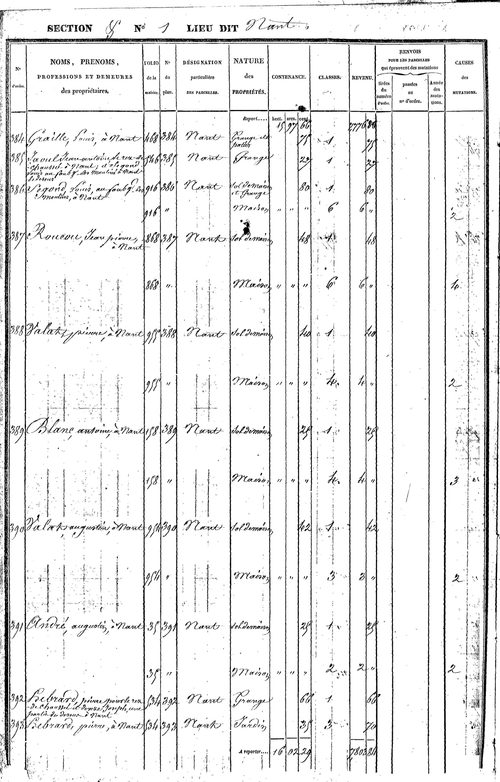 SECTION G N° 1 LIEU DIT Nant
N°s d'ordre. NOMS, PRENOMS, PROFESSIONS ET DEMEURES des propriétaires. FOLIO de la matrice. N° du plan. DÉSIGNATION particulière DES PARCELLES. NATURE des PROPRIÉTÉS. CONTENANCE. CLASSES. REVENU. RENVOIS POUR LES PARCELLES qui éprouvent des mutations tirées du numéro d'ordre. passées au n° d'ordre. Année des mutations. CAUSES des MUTATIONS.
hect. ares. cent.
Report.... 15 97
384 Graille, Louis, à Nant 468 384 Nant Grange et 75 1 75
385 546 385 Nant Grange 1
386 Segond, Louis, au faub.g des 916 386 Nant Sol de maison 80 1 80
à Nant et Grange
916 " Maison " " " 6 6 " 2
387 Roucou, Jean pierre, 868 387 Nant Sol de maison 48 1 48
à Nant
868 " Maison " " " 6 6 "
388 Valat, pierre, à Nant 955 388 Nant Sol de maison 40 1 40
955 " Maison " " " 4 4 " 2
389 Blanc, antoine, à Nant 158 389 Nant Sol de maison 25 1 25
158 " Maison " " " 4 4 " 3
390 Valat, augustin, à Nant 954 390 Nant Sol de maison 42 1 42
954 " Maison " " " 3 3 " 2
391 André, augustin, à Nant 35 391 Nant Sol de maison 25 1 25
35 " Maison " " " 2 2 " 2
392 Hebrard, pierre pour le rez 534 392 Nant Grange 66 1 66
de chaussée et Joseph,
à Nant
393 Hebrard, pierre, à Nant 534 393 Nant Jardin 35 3 70
A reporter.... 16 02 29